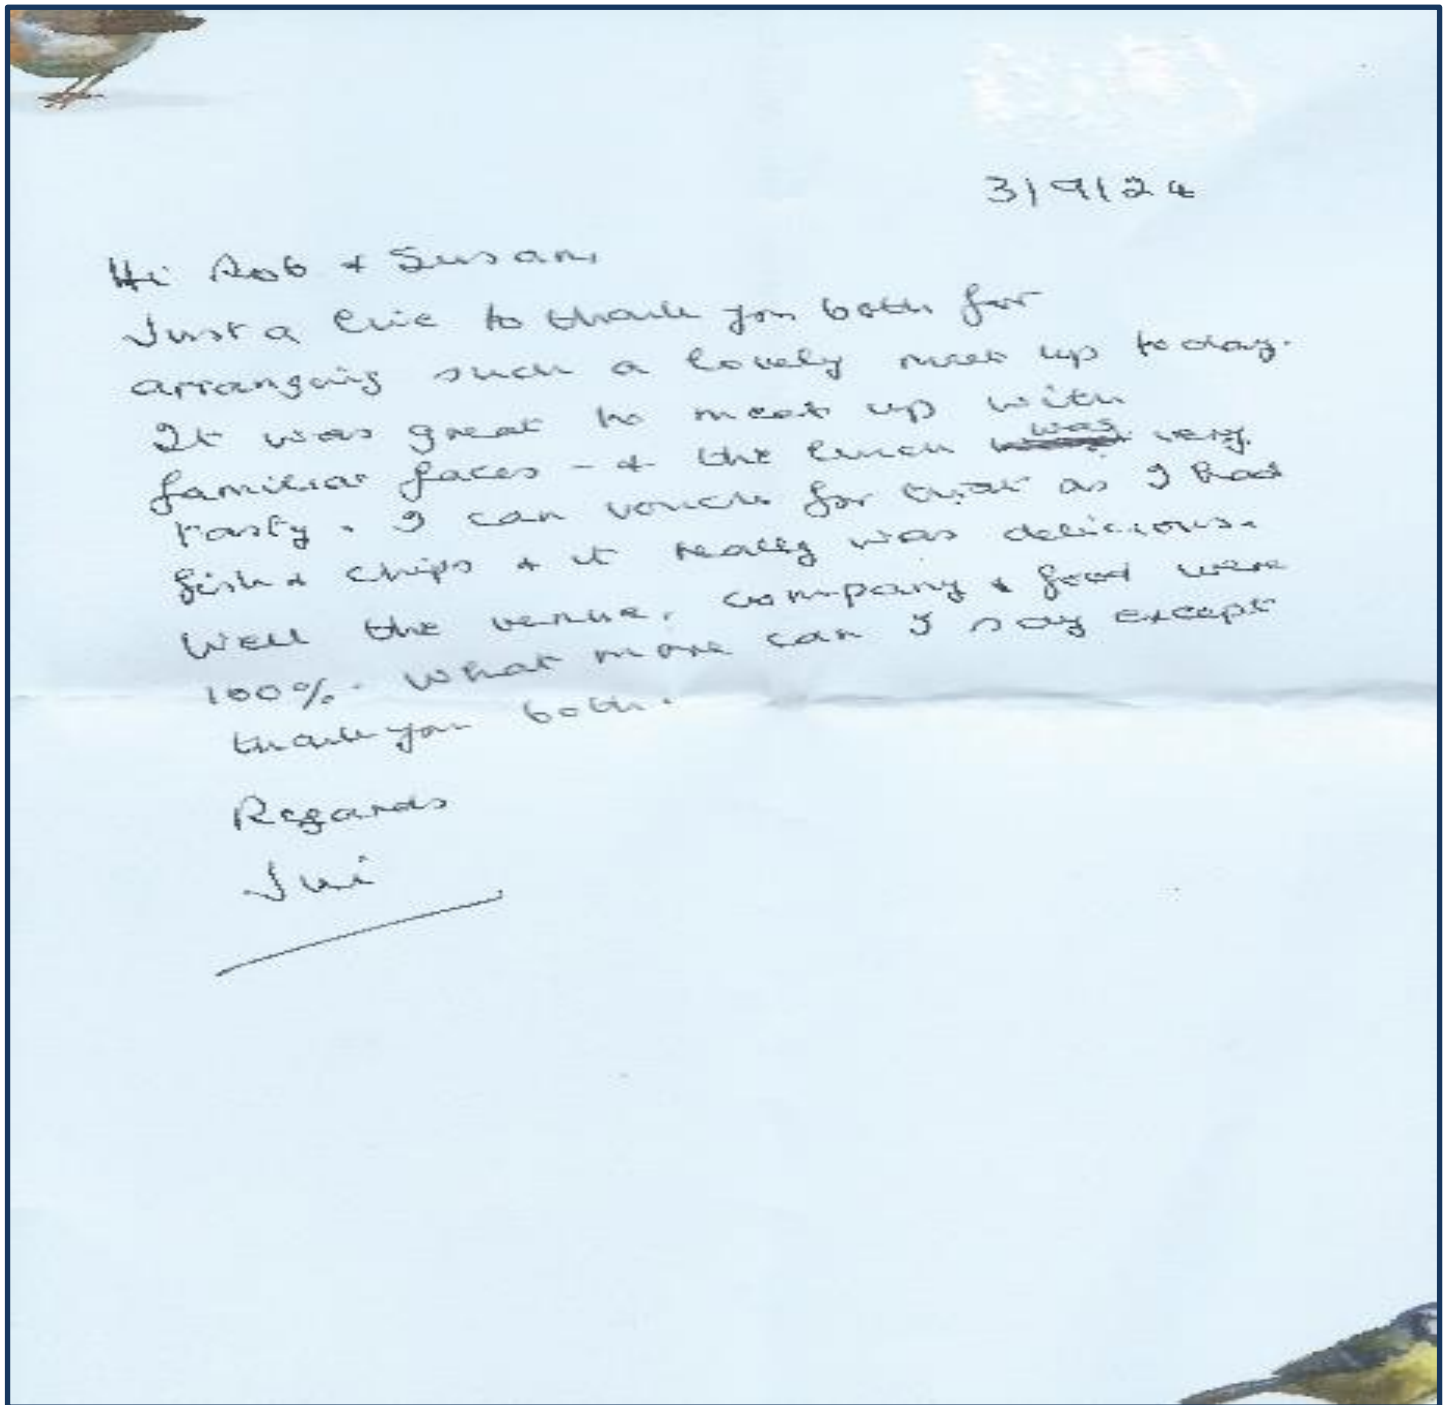 3/9/24
Hi Rob & Susan,
Just a line to thank you both for
arranging such a lovely meet up today.
It was great to meet up with
familiar faces - & the lunch was very
tasty. I can vouch for that as I had
fish & chips & it really was delicious.
Well the venue, company & food were
100%. What more can I say except
thank you both.
Regards